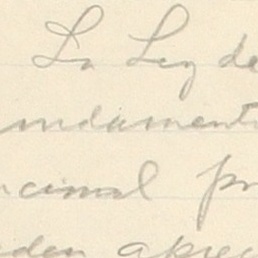 La Ley de
ndament
cional pr
eden aprec